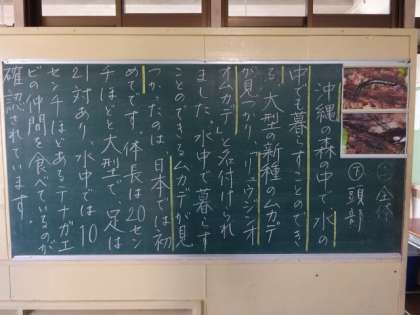 ㊤全体
㊦頭部
沖縄の森の中で、水の
中でも暮らすことのでき
る、大型の新種のムカデ
が見つかり、「リュウジンオ
オムカデ」と名付けられ
ました。水中で暮らす
ことのできるムカデが見
つかったのは、日本では初
めてです。体長は20セン
チほどと大型で、足は
21対あり、水中では10
センチほどあるテナガエ
ビの仲間を食べているのが
確認されています。